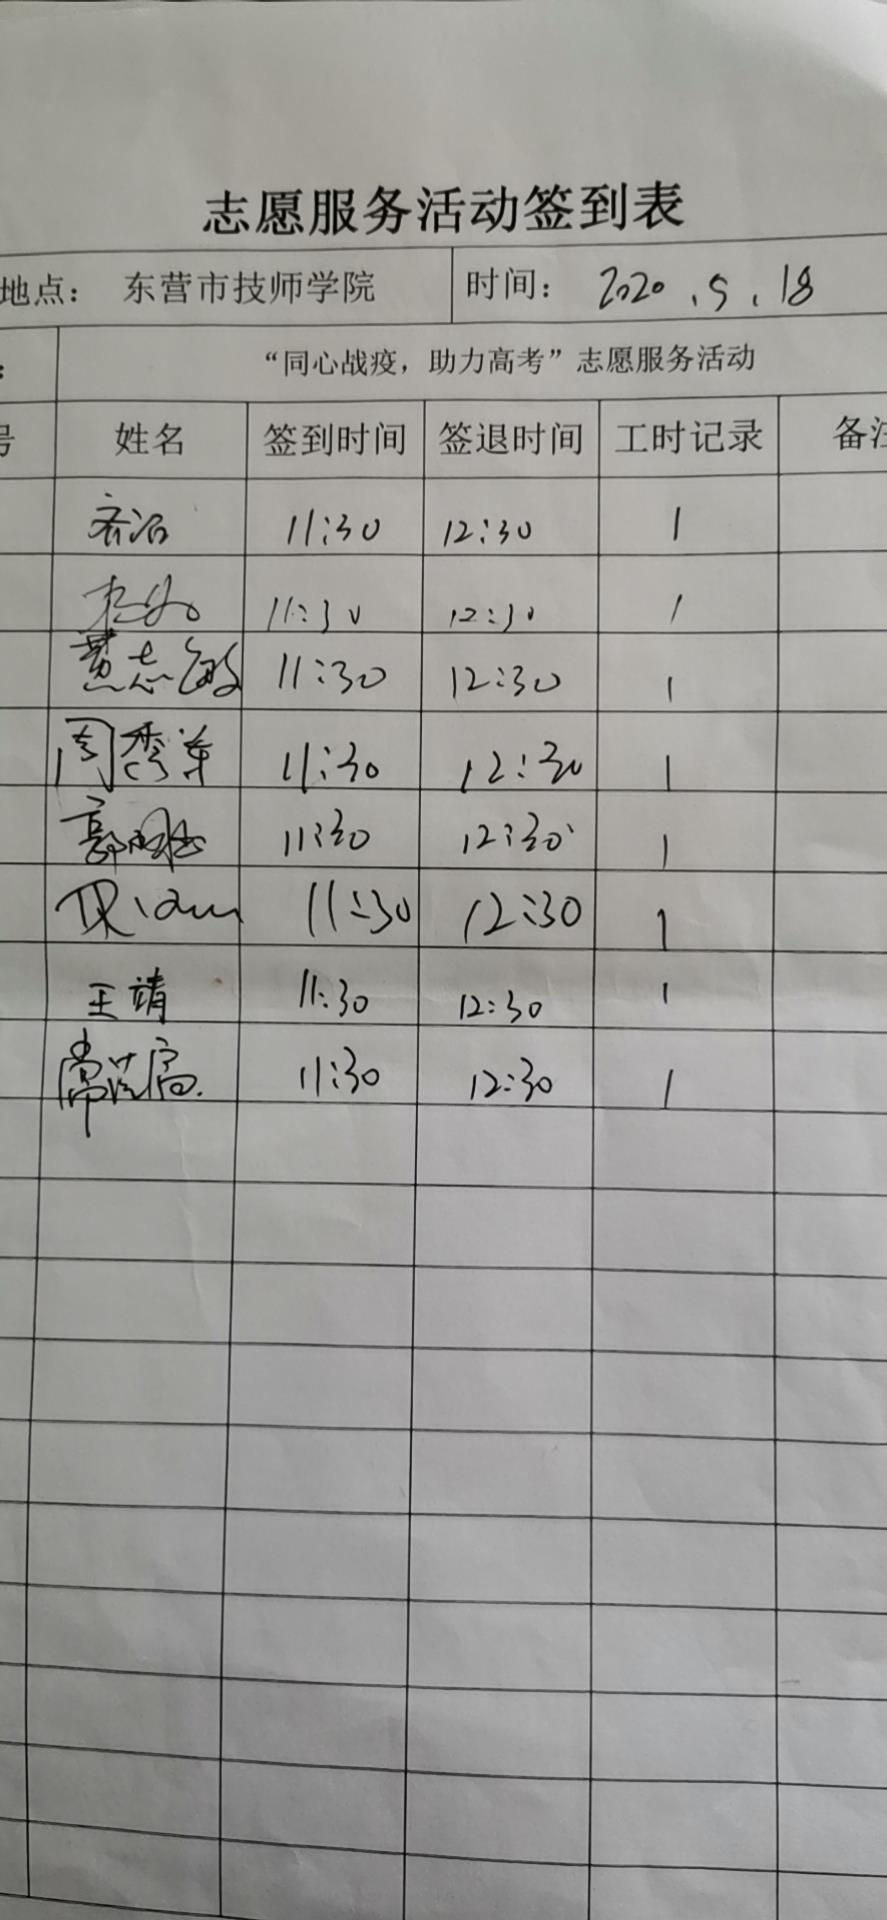 志愿服务活动签到表
地点： 东营市技师学院 时间： 2020.5.18
： “同心战疫，助力高考”志愿服务活动
号 姓名 签到时间 签退时间 工时记录 备注
11:30 12:30 1
11:30 12:30 1
黄志敏 11:30 12:30 1
周秀华 11:30 12:30 1
11:30 12:30 1
11:30 12:30 1
王靖 11:30 12:30 1
11:30 12:30 1